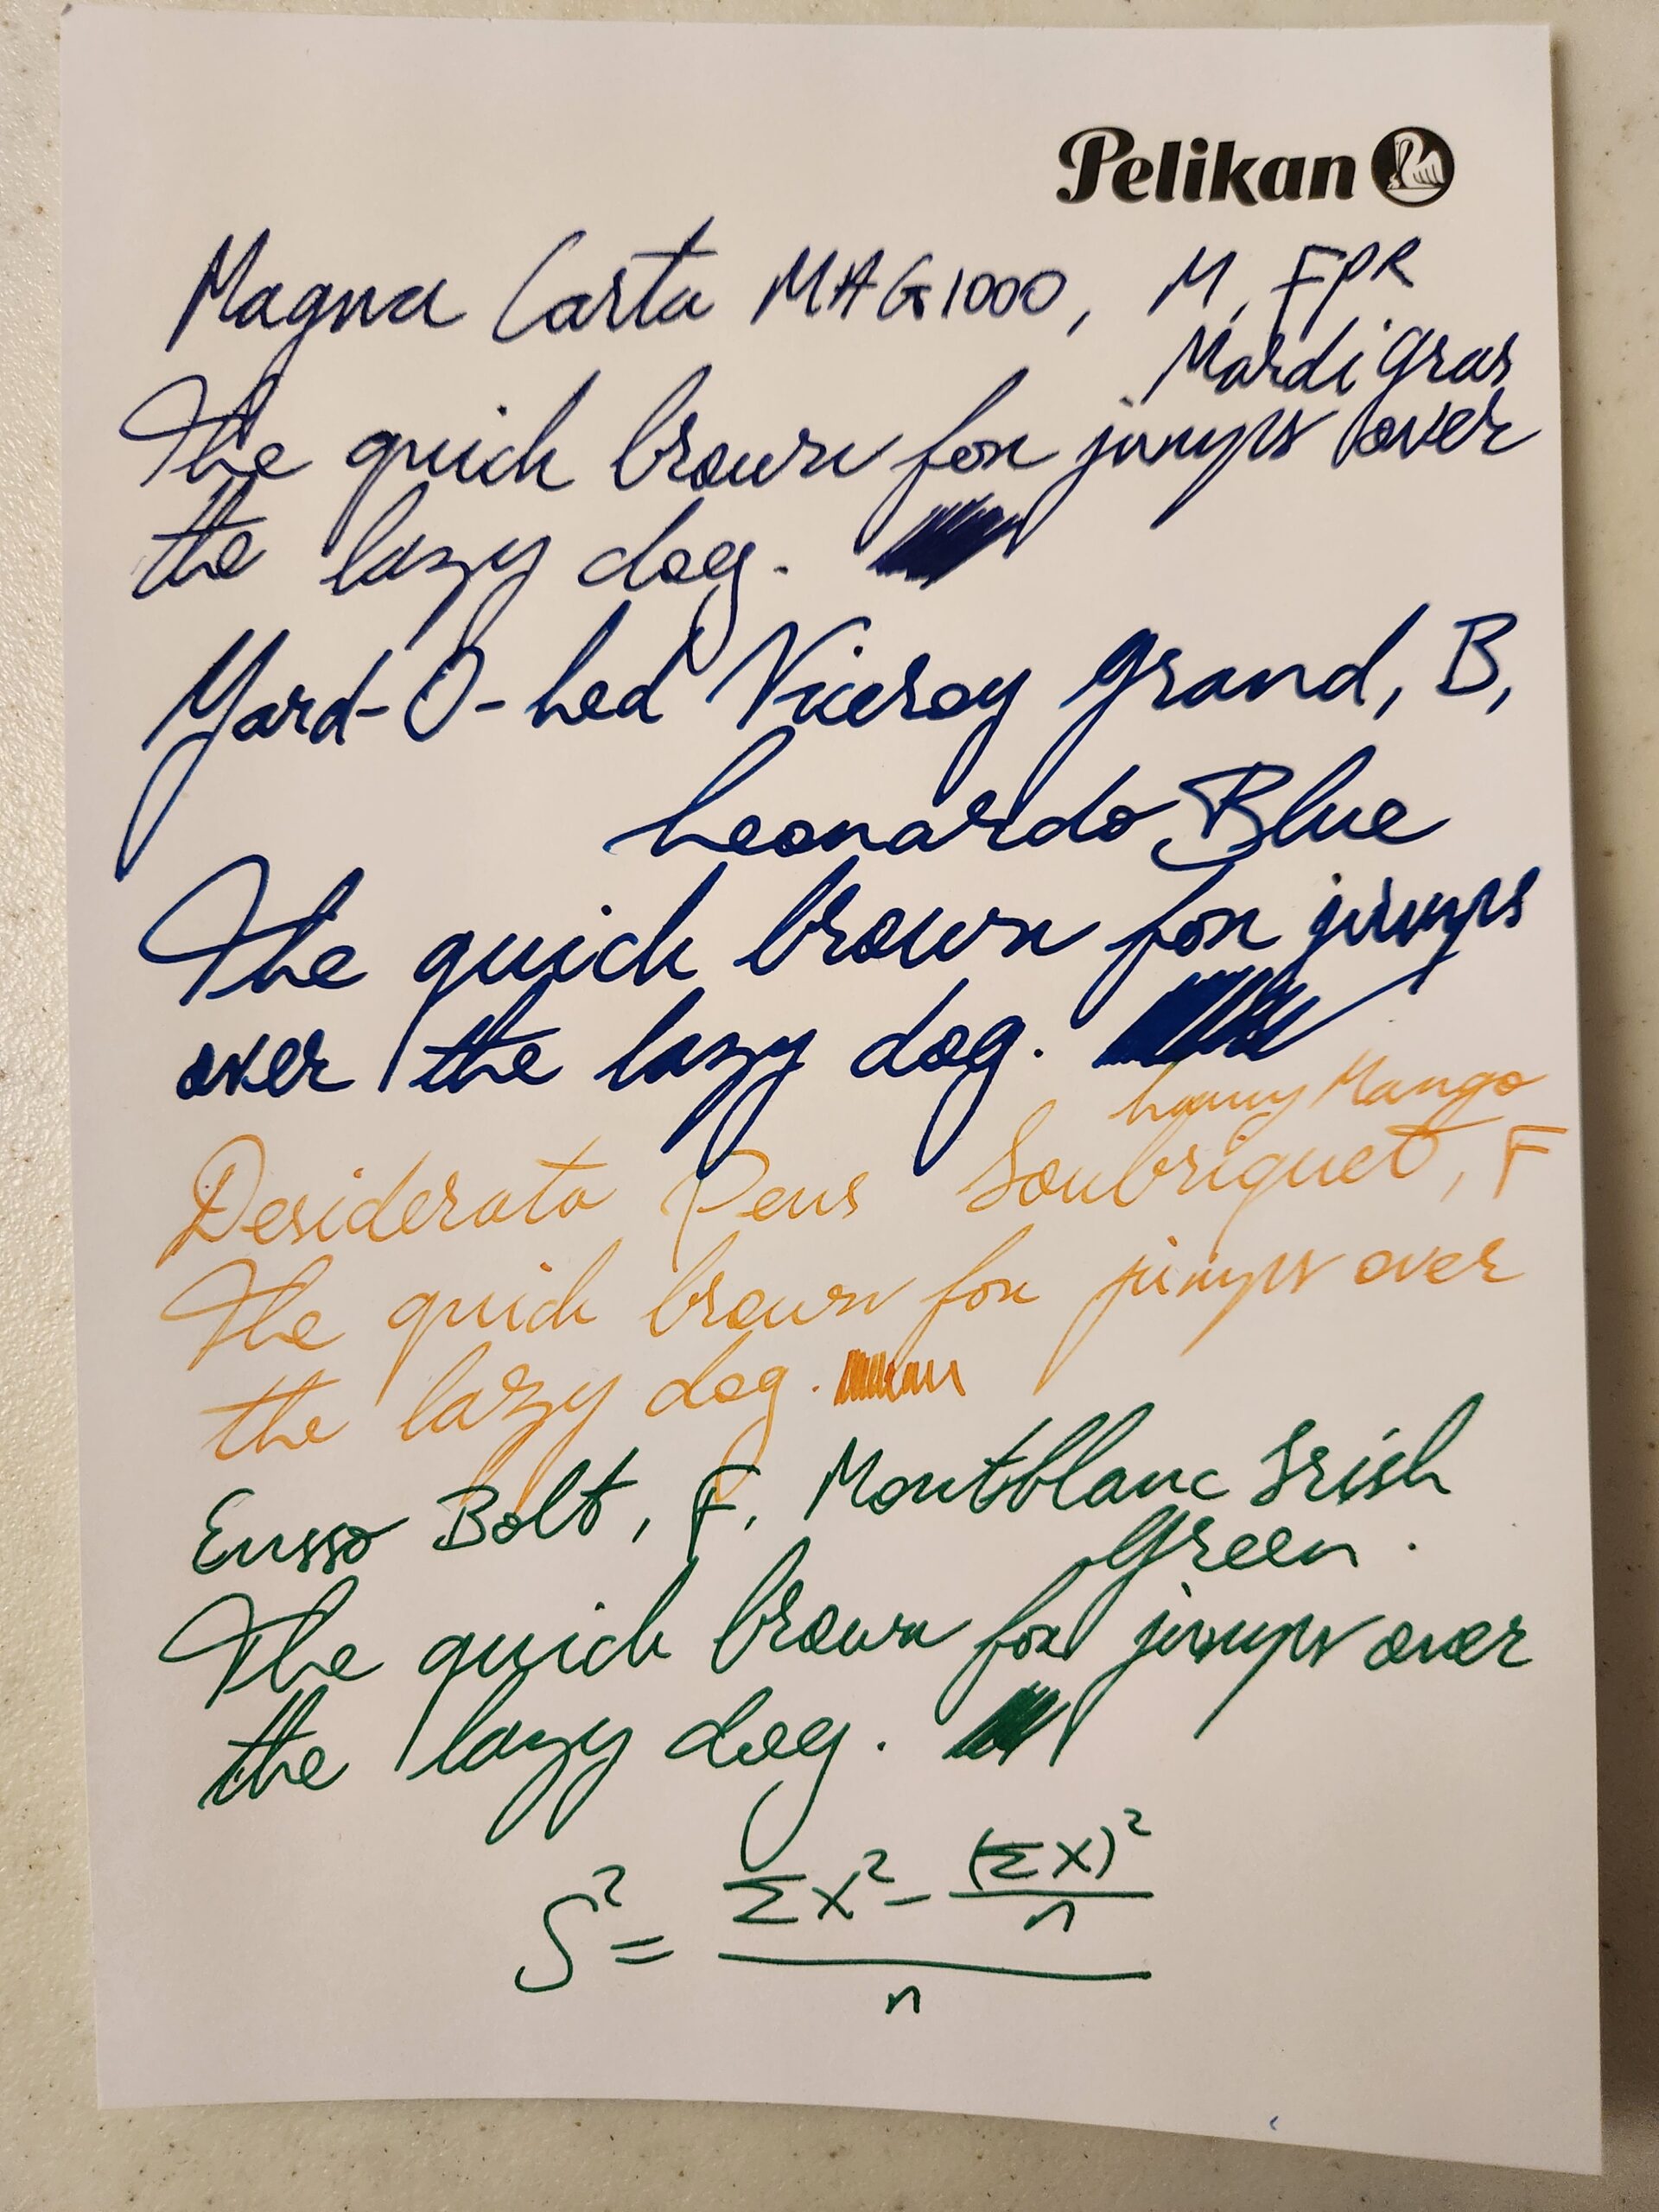 Pelikan
Magna Carta MAG1000, M, FPR
Mardi Gras
The quick brown fox jumps over
the lazy dog.
Yard-O-Led Viceroy Grand, B,
Leonardo Blue
The quick brown fox jumps
over the lazy dog.
Mango
Desiderata Pens Soubriquet, F
The quick brown fox jumps over
the lazy dog.
Ensso Bolt, F, Montblanc Irish
Green.
The quick brown fox jumps over
the lazy dog.
S² = (ΣX² - (ΣX)²/n)/n